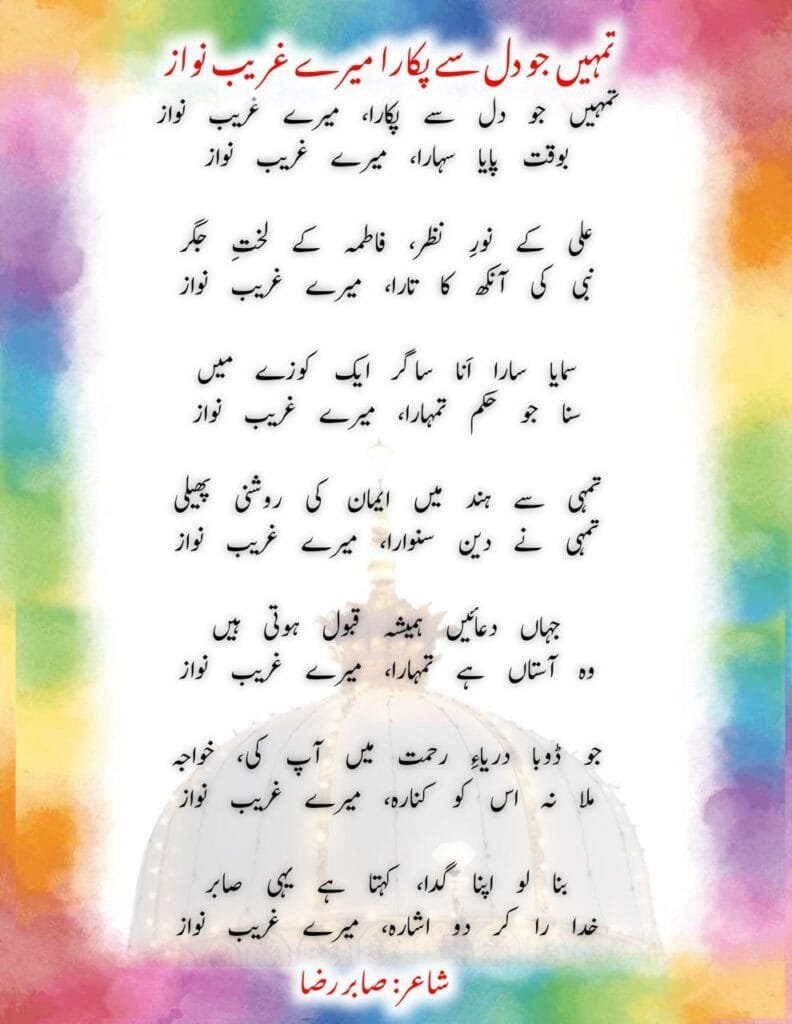 تمہیں جو دل سے پکارا میرے غریب نواز
تمہیں جو دل سے پکارا، میرے غریب نواز
بوقت پایا سہارا، میرے غریب نواز
علی کے نورِ نظر، فاطمہ کے لختِ جگر
نبی کی آنکھ کا تارا، میرے غریب نواز
سمایا سارا اَنا ساگر ایک کوزے میں
سنا جو حکم تمہارا، میرے غریب نواز
تمہی سے ہند میں ایمان کی روشنی پھیلی
تمہی نے دین سنوارا، میرے غریب نواز
جہاں دعائیں ہمیشہ قبول ہوتی ہیں
وہ آستاں ہے تمہارا، میرے غریب نواز
جو ڈوبا دریاءِ رحمت میں آپ کی، خواجہ
ملا نہ اس کو کنارہ، میرے غریب نواز
بنا لو اپنا گدا، کہتا ہے یہی صابر
خدا را کر دو اشارہ، میرے غریب نواز
شاعر: صابر رضا